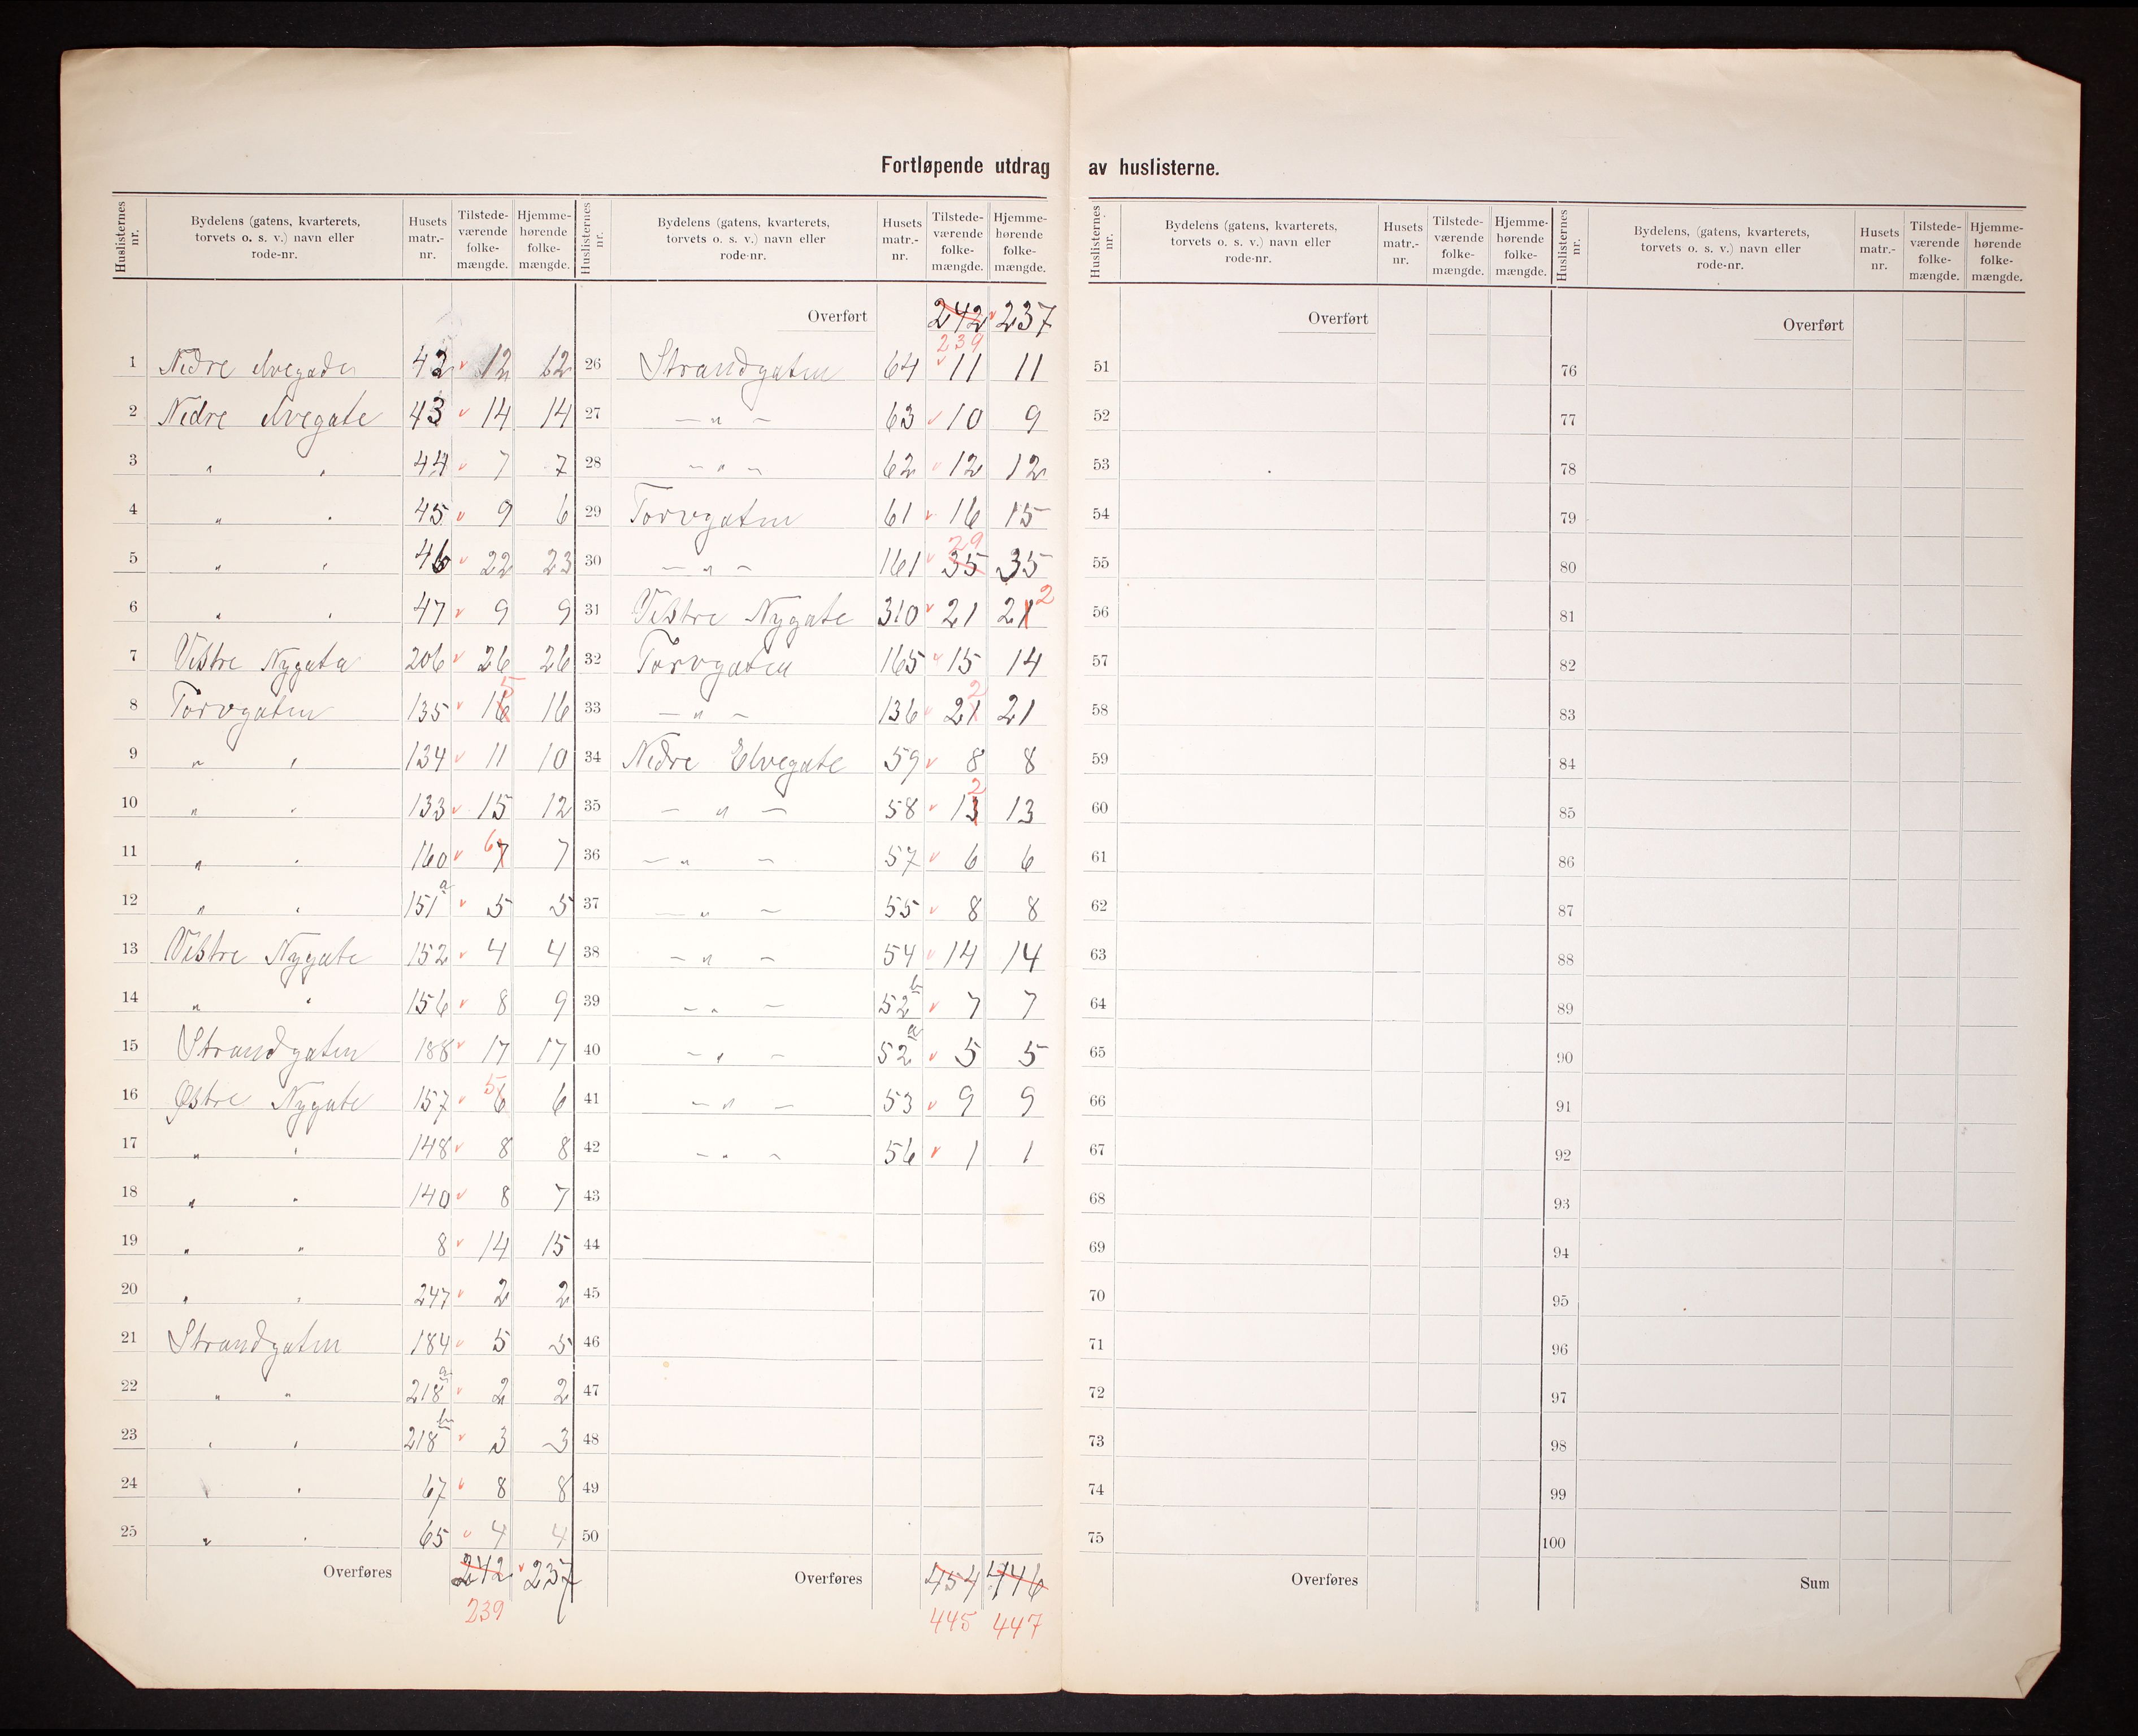 Fortløpende utdrag av huslisterne.
Huslisternes nr. | Bydelens (gatens, kvarterets, torvets o. s. v.) navn eller rode-nr. | Husets matr.-nr. | Tilstede-værende folke-mængde. | Hjemme-hørende folke-mængde.
1 Nedre elvegade 42 v 12 12
2 Nedre elvegate 43 v 14 14
3 " " 44 v 7 7
4 " " 45 v 9 6
5 " " 46 v 22 23
6 " " 47 v 9 9
7 Vestre Nygata 206 v 26 26
8 Torvgaten 135 v 16 5 16
9 " " 134 v 11 10
10 " " 133 v 15 12
11 " " 160 v 6 7 7
12 " " 151a v 5 5
13 Vestre Nygate 152 v 4 4
14 " " 156 v 8 9
15 Strandgaten 188 v 17 17
16 Østre Nygate 157 v 5 6 6
17 " " 148 v 8 8
18 " " 140 v 8 7
19 " " 8 v 14 15
20 " " 247 v 2 2
21 Strandgaten 184 v 5 5
22 " " 218a v 2 2
23 " " 218b v 3 3
24 " " 67 v 8 8
25 " " 65 v 4 4
Overføres 242 v 237
239
Huslisternes nr. | Bydelens (gatens, kvarterets, torvets o. s. v.) navn eller rode-nr. | Husets matr.-nr. | Tilstede-værende folke-mængde. | Hjemme-hørende folke-mængde.
Overført 242 v 237
239
26 Strandgaten 64 v 11 11
27 — " — 63 v 10 9
28 — " — 62 v 12 12
29 Torvgaten 61 v 16 15
30 — " — 161 v 35 29 35
31 Vestre Nygate 310 v 21 21 2
32 Torvgaten 165 v 15 14
33 — " — 136 v 21 2 21
34 Nedre Elvegate 59 v 8 8
35 — " — 58 v 13 2 13
36 — " — 57 v 6 6
37 — " — 55 v 8 8
38 — " — 54 v 14 14
39 — " — 52b v 7 7
40 — " — 52a v 5 5
41 — " — 53 v 9 9
42 — " — 56 v 1 1
43
44
45
46
47
48
49
50
Overføres 454 446
445 447
Huslisternes nr. | Bydelens (gatens, kvarterets, torvets o. s. v.) navn eller rode-nr. | Husets matr.-nr. | Tilstede-værende folke-mængde. | Hjemme-hørende folke-mængde.
Overført
51
52
53
54
55
56
57
58
59
60
61
62
63
64
65
66
67
68
69
70
71
72
73
74
75
Overføres
Huslisternes nr. | Bydelens, (gatens, kvarterets, torvets o. s. v.) navn eller rode-nr. | Husets matr.-nr. | Tilstede-værende folke-mængde. | Hjemme-hørende folke-mængde.
Overført
76
77
78
79
80
81
82
83
84
85
86
87
88
89
90
91
92
93
94
95
96
97
98
99
100
Sum